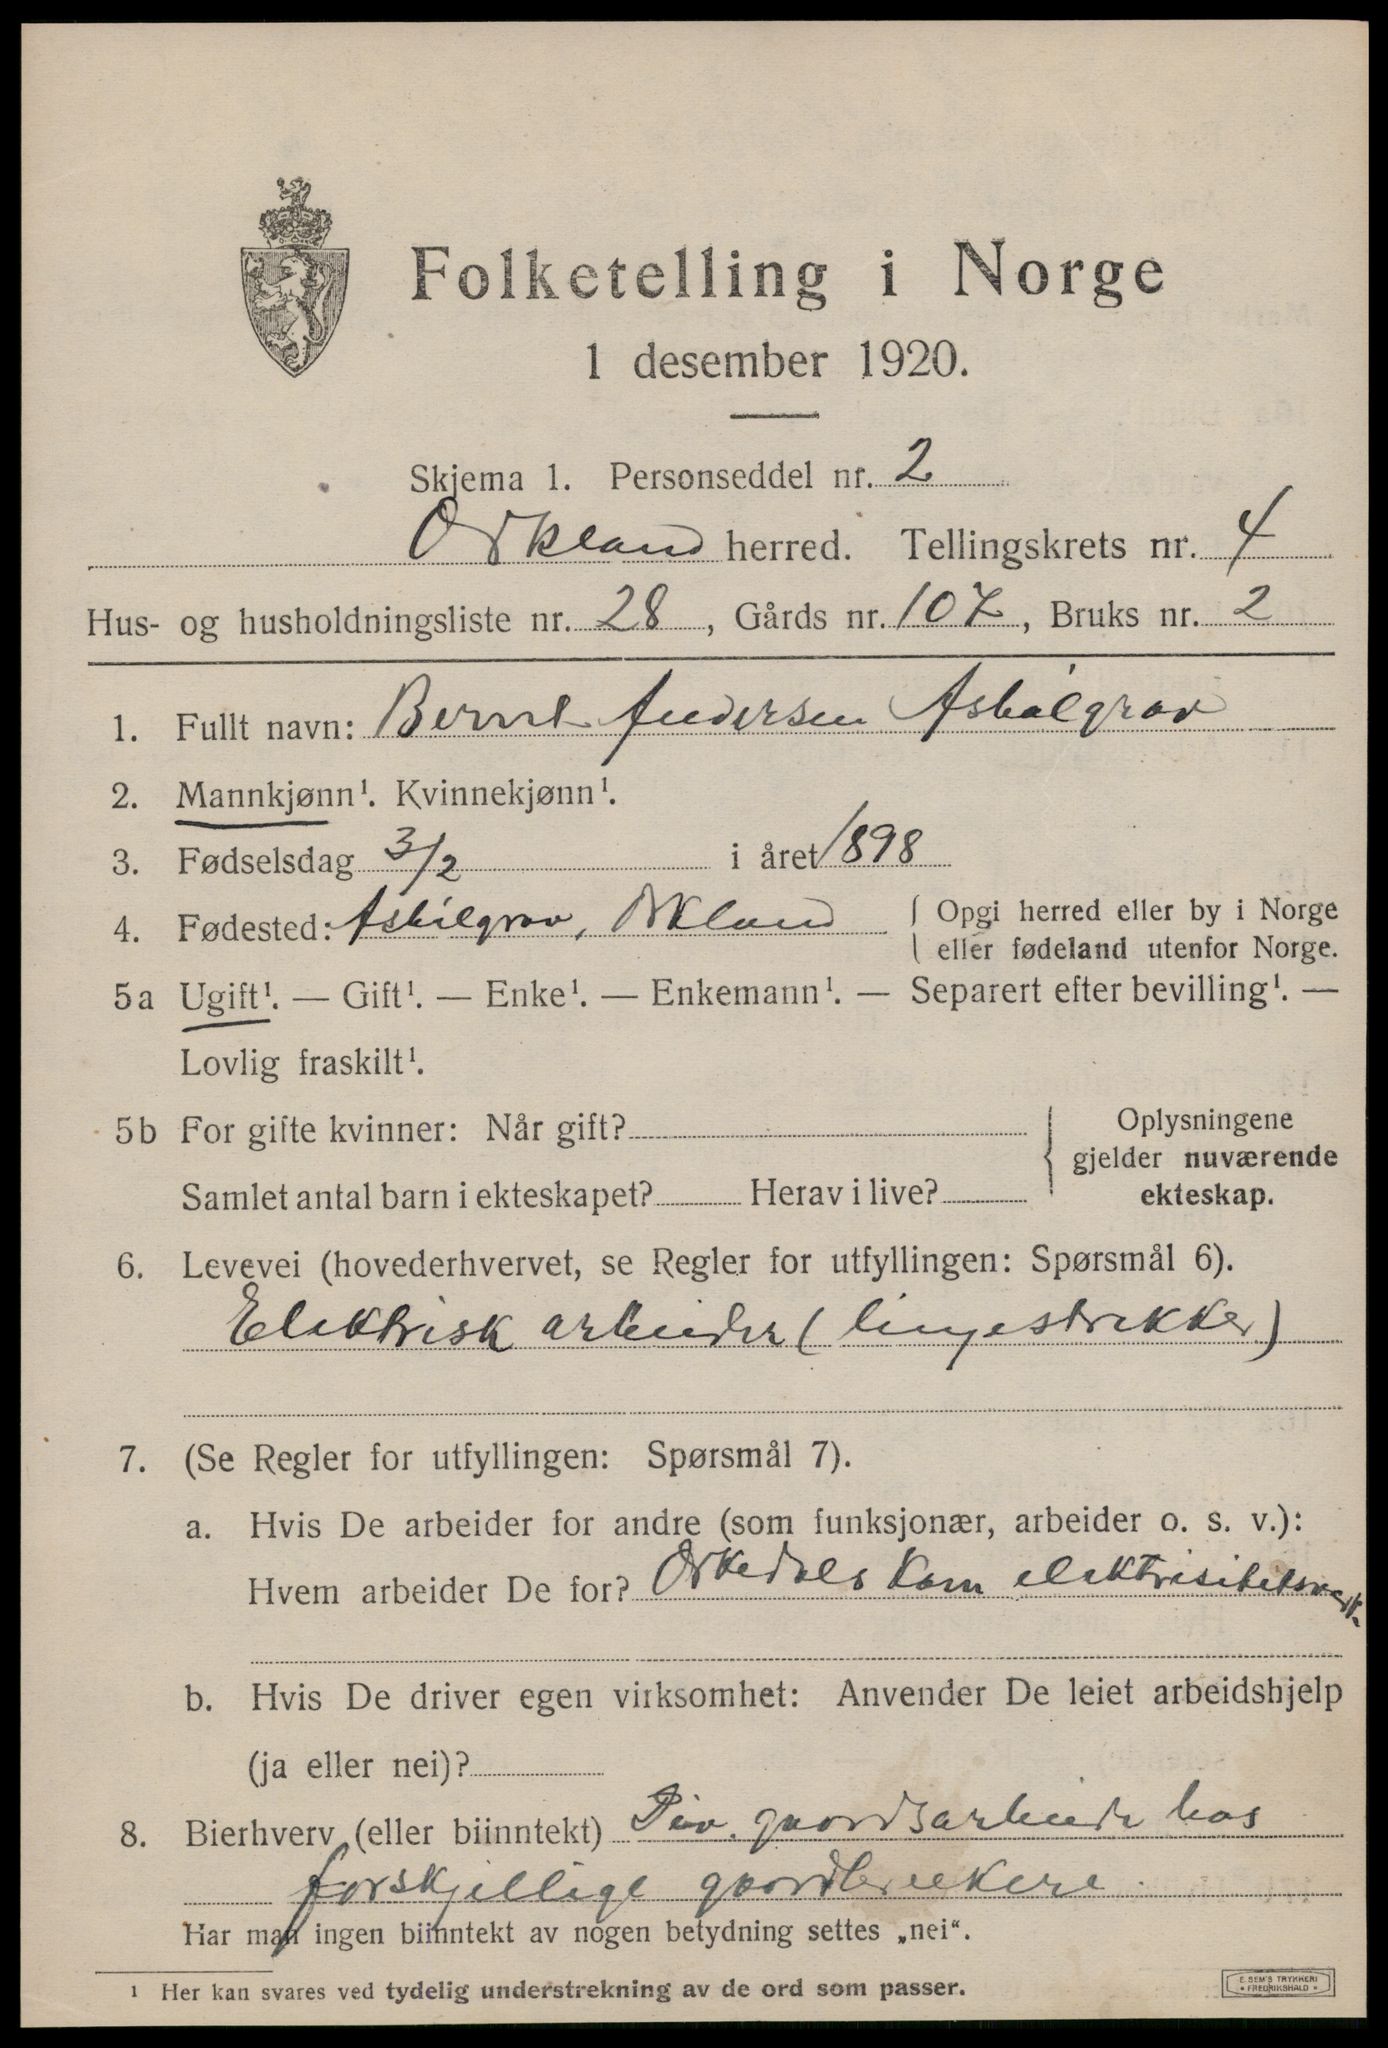 Folketelling i Norge
1 desember 1920.
Skjema 1. Personseddel nr. 2
Orkland herred. Tellingskrets nr. 4
Hus- og husholdningsliste nr. 28, Gårds nr. 107, Bruks nr. 2
1. Fullt navn: Bernt Andersen Asbølgrav
2. Mannkjønn¹. Kvinnekjønn¹.
3. Fødselsdag 3/2 i året 1898
4. Fødested: Asbølgrav, Orkland { Opgi herred eller by i Norge
eller fødeland utenfor Norge.
5a Ugift¹. — Gift¹. — Enke¹. — Enkemann¹. — Separert efter bevilling¹. —
Lovlig fraskilt¹.
5b For gifte kvinner: Når gift? { Oplysningene
gjelder nuværende
Samlet antal barn i ekteskapet? Herav i live? ekteskap.
6. Levevei (hovederhvervet, se Regler for utfyllingen: Spørsmål 6).
Elektrisk arbeider (linjestrekker)
7. (Se Regler for utfyllingen: Spørsmål 7).
a. Hvis De arbeider for andre (som funksjonær, arbeider o. s. v.):
Hvem arbeider De for? Orkedals Kom elektrisitetsverk.
b. Hvis De driver egen virksomhet: Anvender De leiet arbeidshjelp
(ja eller nei)?
8. Bierhverv (eller biinntekt) Div. gaardsarbeide hos
forskjellige gaardbrukere.
Har man ingen biinntekt av nogen betydning settes „nei“.
¹ Her kan svares ved tydelig understrekning av de ord som passer.
E. SEM'S TRYKKERI
• FREDRIKSHALD •